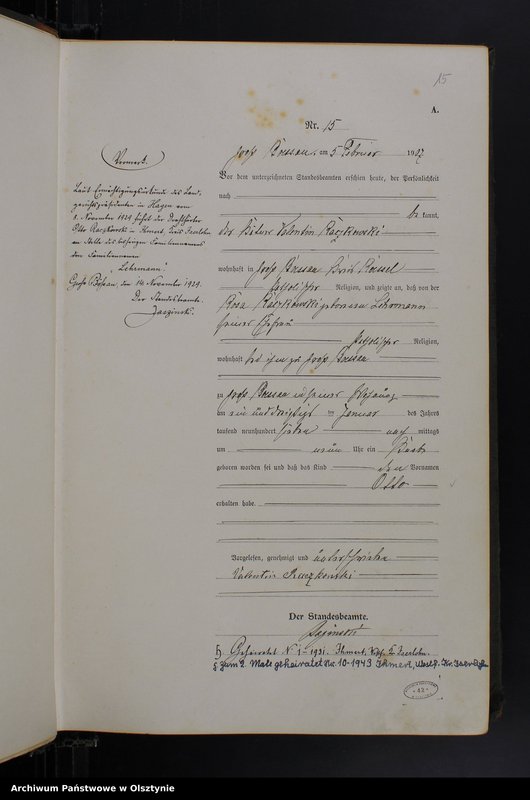 15
A.
Nr. 15
Groß Bössau, am 5 Februar 1907
Vor dem unterzeichneten Standesbeamten erschien heute, der Persönlichkeit
nach
be kannt,
der Valentin Raczkowski
wohnhaft in Groß Bössau
katholischer Religion, und zeigte an, daß von der
Rosa Raczkowski geborenen Lehrmann
seiner Ehefrau
katholischer Religion,
wohnhaft bei ihm zu Groß Bössau
zu Groß Bössau in seiner
am ein und dreißigsten Januar des Jahres
tausend neunhundert sieben nach mittags
um neun Uhr ein Knabe
geboren worden sei und daß das Kind den Vornamen
Otto
erhalten habe.
Vorgelesen, genehmigt und unterschrieben
Valentin Raczkowski
Der Standesbeamte.
Vermerk.
Laut Ermächtigungsurkunde des Land-
gerichtspräsidenten in Hagen vom
1. November 1939 führt der
Otto Raczkowski in Ihmert, Kreis Iserlohn
an Stelle des bisherigen Familiennamens
den Familiennamen
"Lehrmann"
Groß Bössau, den 14. November 1939.
Der Standesbeamte.
h Geheiratet N 1-1931. Ihmert, Iserlohn.
§ zum 2. Male geheiratet Nr. 10-1943 Ihmert, Westf. Kr. Iserlohn
42
Archiwum Państwowe w Olsztynie